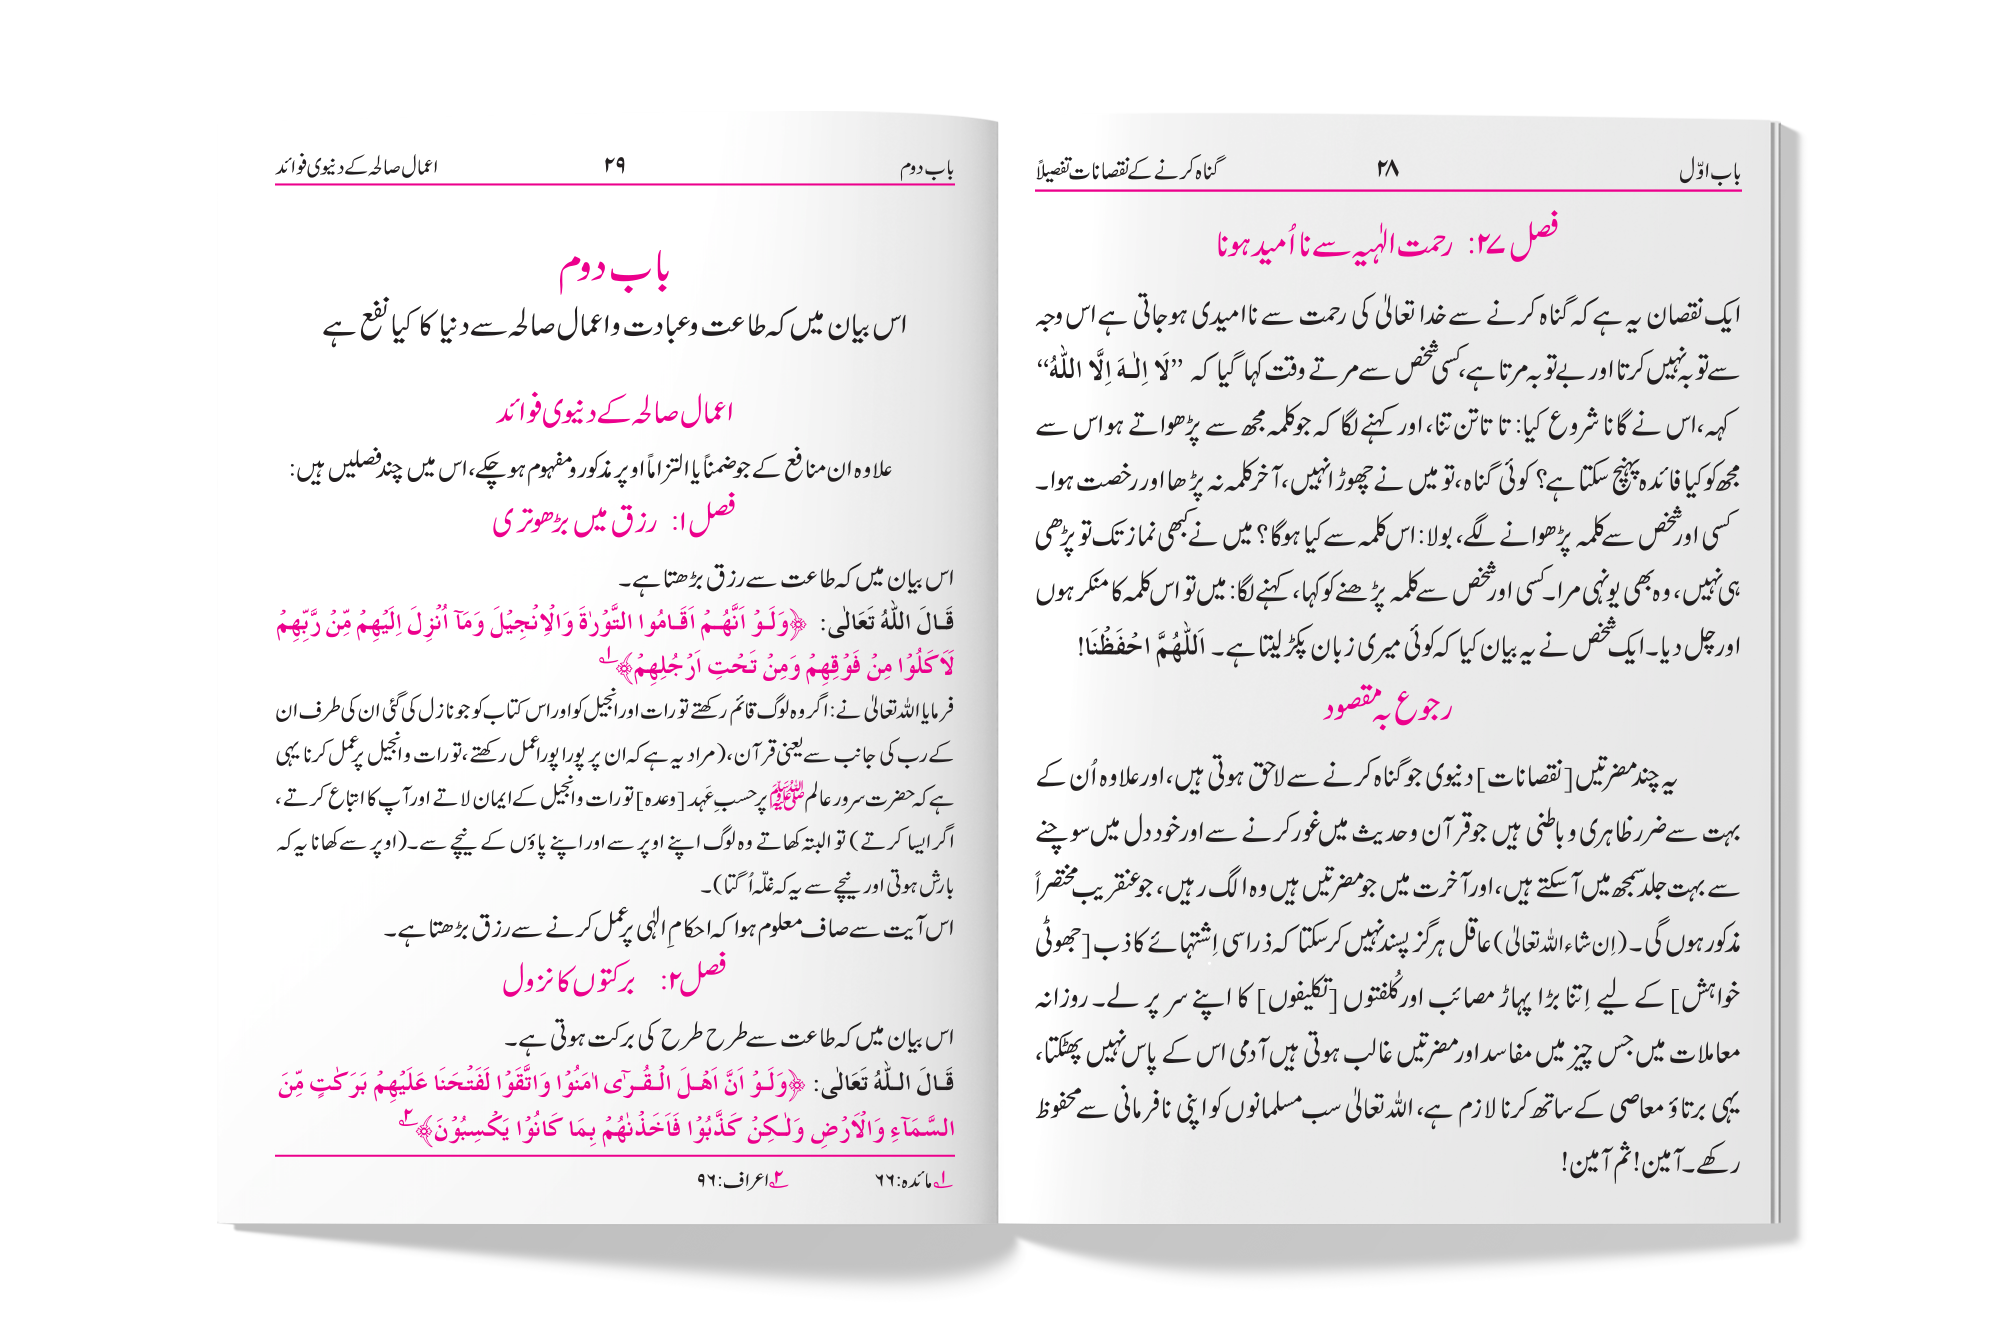 باب اوّل ۲۸ گناہ کرنے کے نقصانات تفصیلاً
فصل ۲۷: رحمت الٰہیہ سے نا اُمید ہونا
ایک نقصان یہ ہے کہ گناہ کرنے سے خدا تعالیٰ کی رحمت سے ناامیدی ہوجاتی ہے اس وجہ
سے توبہ نہیں کرتا اور بے توبہ مرتا ہے، کسی شخص سے مرتے وقت کہا گیا کہ ”لَا اِلٰہَ اِلَّا اللّٰہُ“
کہہ، اس نے گانا شروع کیا: تا تا تن تنا، اور کہنے لگا کہ جو کلمہ مجھ سے پڑھواتے ہو اس سے
مجھ کو کیا فائدہ پہنچ سکتا ہے؟ کوئی گناہ ،تو میں نے چھوڑا نہیں، آخر کلمہ نہ پڑھا اور رخصت ہوا۔
کسی اور شخص سے کلمہ پڑھوانے لگے، بولا: اس کلمہ سے کیا ہوگا؟ میں نے کبھی نماز تک تو پڑھی
ہی نہیں، وہ بھی یونہی مرا۔ کسی اور شخص سے کلمہ پڑھنے کو کہا، کہنے لگا: میں تو اس کلمہ کا منکر ہوں
اور چل دیا۔ ایک شخص نے یہ بیان کیا کہ کوئی میری زبان پکڑ لیتا ہے۔ اَللّٰہُمَّ احْفَظْنَا!
رجوع بہ مقصود
یہ چند مضرتیں [نقصانات] دنیوی جو گناہ کرنے سے لاحق ہوتی ہیں، اور علاوہ اُن کے
بہت سے ضرر ظاہری و باطنی ہیں جو قرآن و حدیث میں غور کرنے سے اور خود دل میں سوچنے
سے بہت جلد سمجھ میں آسکتے ہیں، اور آخرت میں جو مضرتیں ہیں وہ الگ رہیں، جو عنقریب مختصراً
مذکور ہوں گی۔ (اِن شاء اللہ تعالیٰ) عاقل ہرگز پسند نہیں کرسکتا کہ ذرا سی اِشتہائے کاذب [جھوٹی
خواہش] کے لیے اِتنا بڑا پہاڑ مصائب اور کُلفتوں [تکلیفوں] کا اپنے سر پر لے۔ روزانہ
معاملات میں جس چیز میں مفاسد اور مضرتیں غالب ہوتی ہیں آدمی اس کے پاس نہیں پھٹکتا،
یہی برتاؤ معاصی کے ساتھ کرنا لازم ہے، اللہ تعالیٰ سب مسلمانوں کو اپنی نافرمانی سے محفوظ
رکھے۔ آمین! ثم آمین!
باب دوم ۲۹ اعمال صالحہ کے دنیوی فوائد
باب دوم
اس بیان میں کہ طاعت و عبادت و اعمال صالحہ سے دنیا کا کیا نفع ہے
اعمال صالحہ کے دنیوی فوائد
علاوہ ان منافع کے جو ضمناً یا التزاماً اوپر مذکور و مفہوم ہوچکے، اس میں چند فصلیں ہیں:
فصل ۱: رزق میں بڑھوتری
اس بیان میں کہ طاعت سے رزق بڑھتا ہے۔
قَالَ اللّٰہُ تَعَالٰی: ﴿وَلَوْ اَنَّهُمْ اَقَامُوا التَّوْرٰىةَ وَالْاِنْجِيْلَ وَمَآ اُنْزِلَ اِلَيْهِمْ مِّنْ رَّبِّهِمْ
لَاَكَلُوْا مِنْ فَوْقِهِمْ وَمِنْ تَحْتِ اَرْجُلِهِمْ﴾ ۱
فرمایا اللہ تعالیٰ نے: اگر وہ لوگ قائم رکھتے تورات اور انجیل کو اور اس کتاب کو جو نازل کی گئی ان کی طرف ان
کے رب کی جانب سے یعنی قرآن، (مراد یہ ہے کہ ان پر پورا پورا عمل رکھتے، تورات وانجیل پر عمل کرنا یہی
ہے کہ حضرت سرور عالم ﷺ پر حسبِ عَہد [وعدہ] تورات وانجیل کے ایمان لاتے اور آپ کا اتباع کرتے،
اگر ایسا کرتے) تو البتہ کھاتے وہ لوگ اپنے اوپر سے اور اپنے پاؤں کے نیچے سے۔ (اوپر سے کھانا یہ کہ
بارش ہوتی اور نیچے سے یہ کہ غلّہ اُگتا)۔
اس آیت سے صاف معلوم ہوا کہ احکامِ الٰہی پر عمل کرنے سے رزق بڑھتا ہے۔
فصل ۲: برکتوں کا نزول
اس بیان میں کہ طاعت سے طرح طرح کی برکت ہوتی ہے۔
قَالَ اللّٰہُ تَعَالٰی: ﴿وَلَوْ اَنَّ اَهْلَ الْقُرٰٓى اٰمَنُوْا وَاتَّقَوْا لَفَتَحْنَا عَلَيْهِمْ بَرَكٰتٍ مِّنَ
السَّمَآءِ وَالْاَرْضِ وَلٰكِنْ كَذَّبُوْا فَاَخَذْنٰهُمْ بِمَا كَانُوْا يَكْسِبُوْنَ﴾ ۲
۱ مائدہ: ۶۶ ۲ اعراف: ۹۶